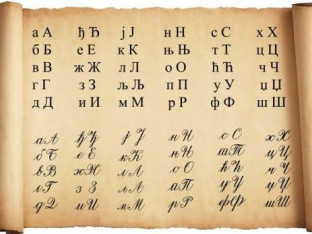 аА ђЂ јЈ нН сС хХ
бБ еЕ кК њЊ тТ цЦ
вВ жЖ лЛ оО ћЋ чЧ
гГ зЗ љЉ пП уУ џЏ
дД иИ мМ рР фФ шШ
аА ђЂ јЈ нН сС хХ
бБ еЕ кК њЊ тТ цЦ
вВ жЖ лЛ оО ћЋ чЧ
гГ зЗ љЉ пП уУ џЏ
дД иИ мМ рР фФ шШ